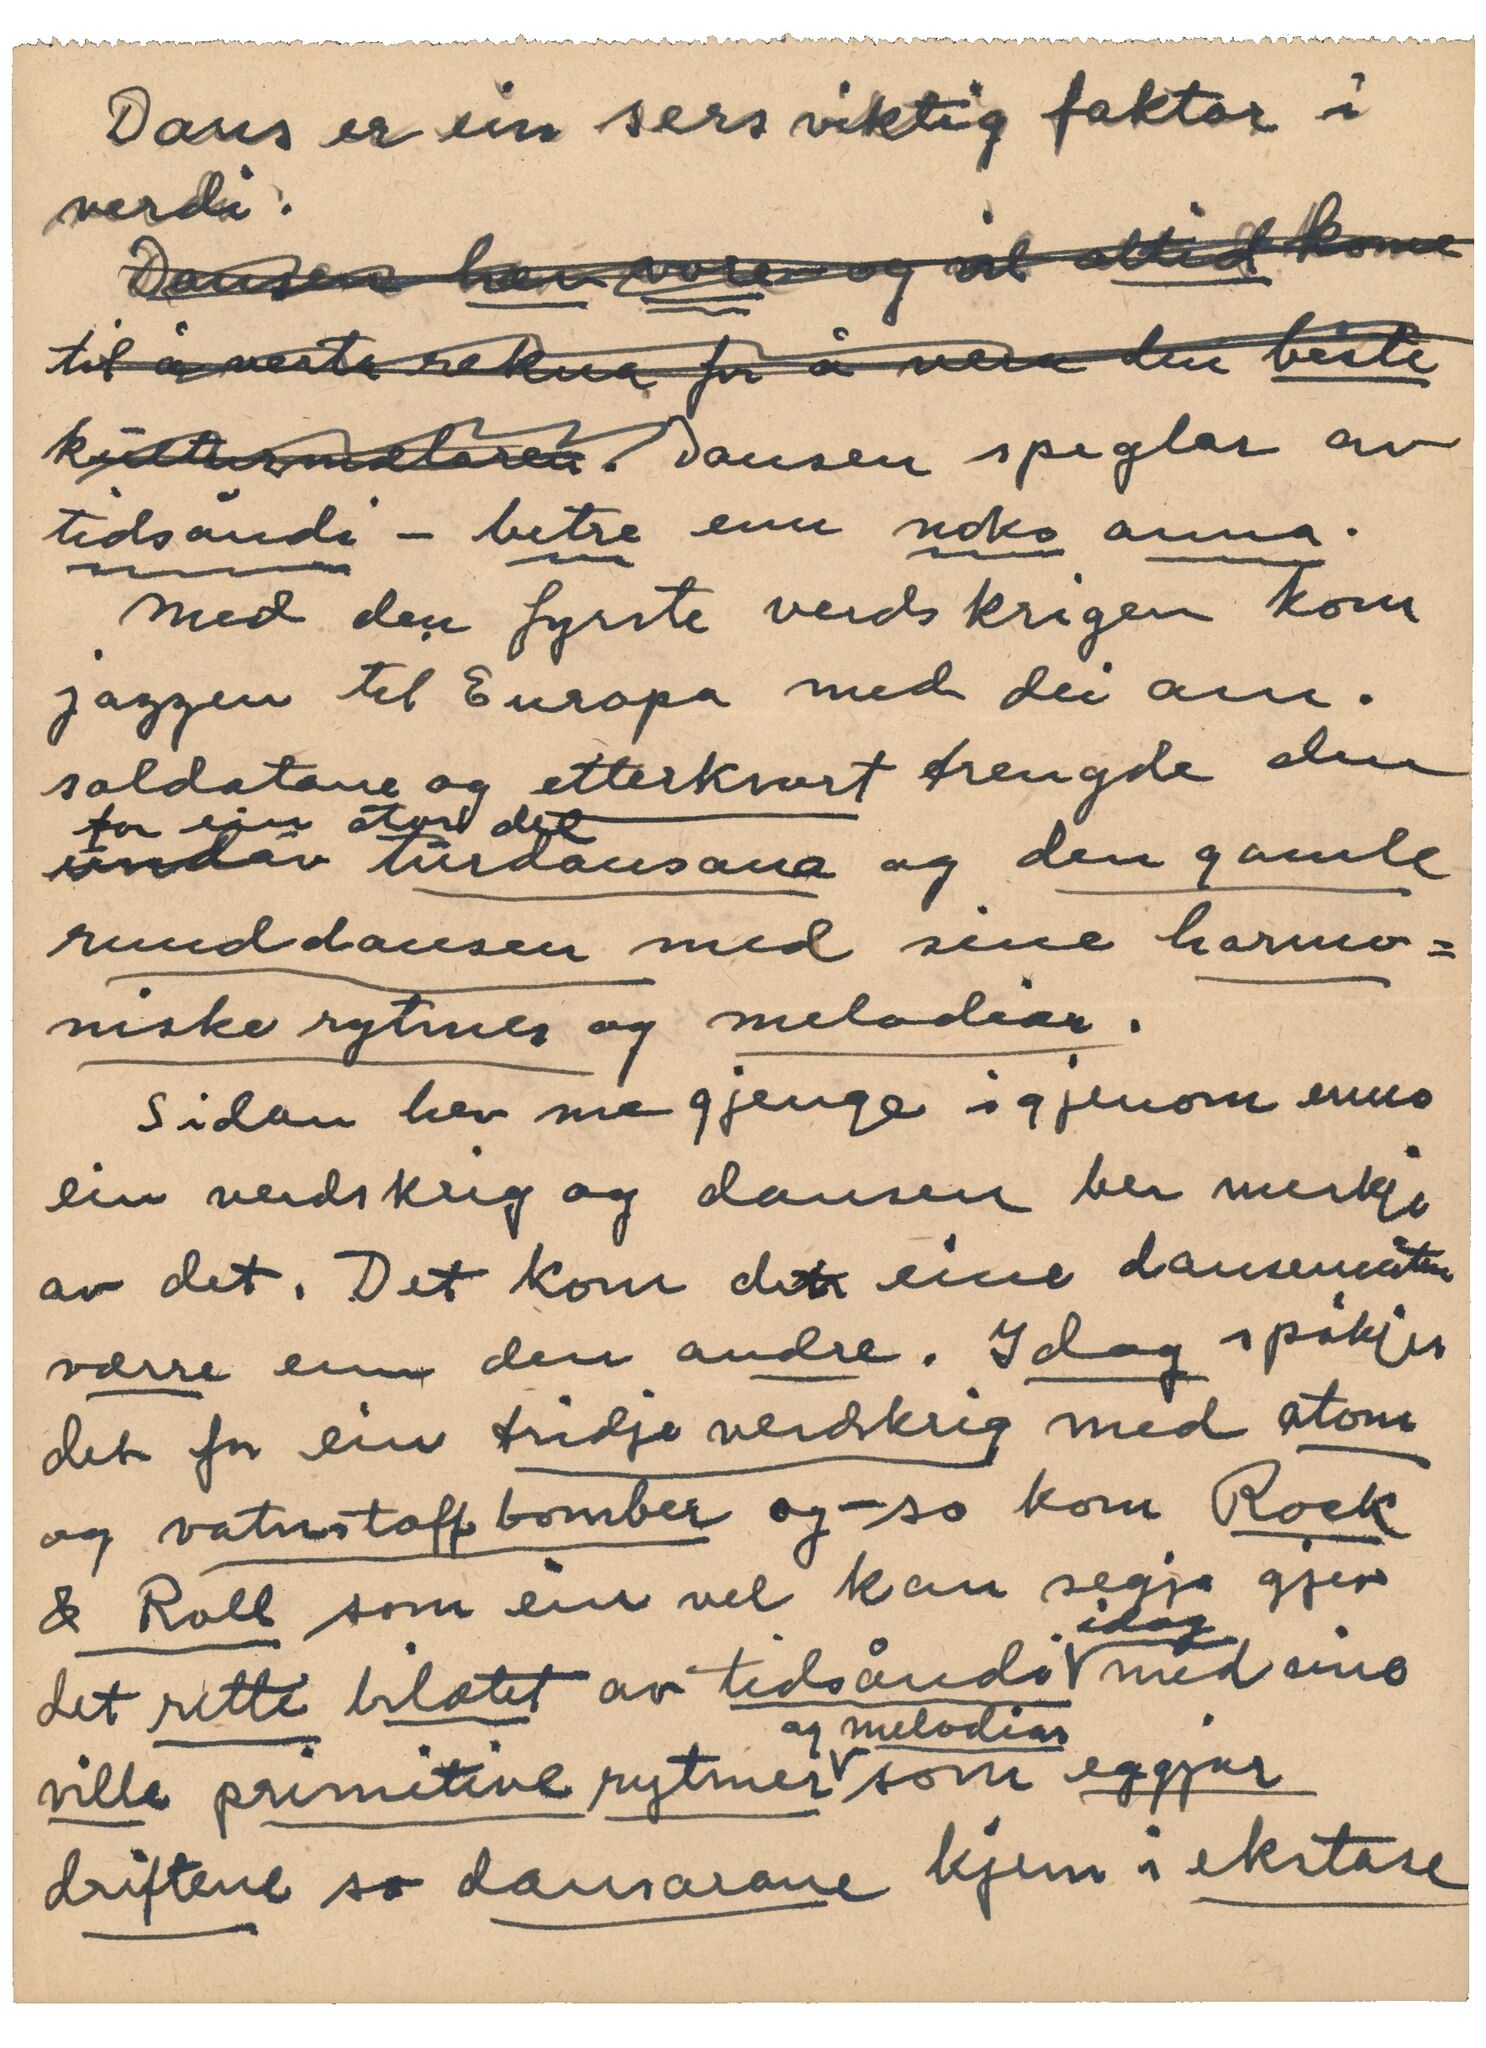 Dans er ein sers viktig faktor i
verdi.
Dansen hev vore og vil alltid kome
til å verta rekna for å vera den beste
kulturmålaren. Dansen speglar av
tidsåndi – betre enn noko anna.
Med den fyrste verdskrigen kom
jazzen til Europa med dei am.
soldatane og etterkvart trengde den
for ein stor del
undav turdansana og den gamle
runddansen med sine harmo=
niske rytmer og melodiar.
Sidan hev me gjenge igjenom enno
ein verdskrig og dansen ber merkje
av det. Det kom den eine dansemåten
værre enn den andre. Idag spåkjer
det for ein tridje verdskrig med atom
og vatnstoffbomber og – so kom Rock
& Roll som ein vel kan segja gjev
idag
det rette bilætet av tidsåndi med sine
og melodiar
ville primitive rytmer som eggjar
driftene so dansarane kjem i ekstase